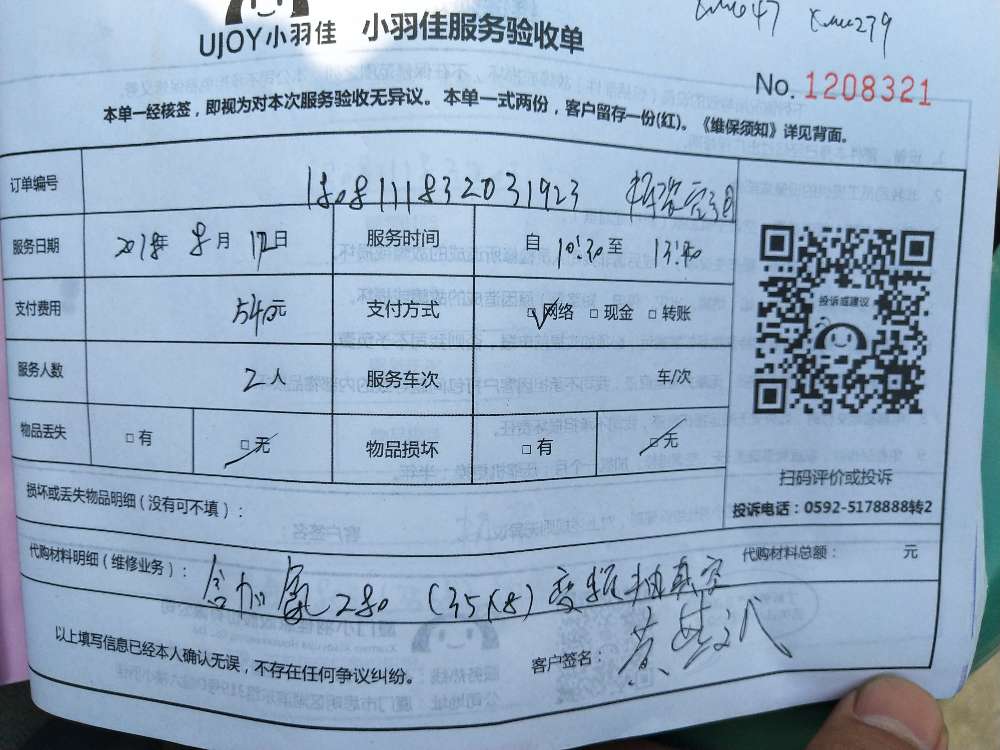 UJOY小羽佳 小羽佳服务验收单
No. 1208321
本单一经核签，即视为对本次服务验收无异议。本单一式两份，客户留存一份(红)。《维保须知》详见背面。
订单编号
服务日期 2018年 8月 12日 服务时间 自 10:30 至 13:40
支付费用 540元 支付方式 □网络 □现金 □转账
投诉或建议
服务人数 2人 服务车次 车/次
物品丢失 □有 □无 物品损坏 □有 □无
扫码评价或投诉
投诉电话：0592-5178888转2
损坏或丢失物品明细（没有可不填）：
代购材料明细（维修业务）： 含加氟280 (35×8) 变频抽真空
代购材料总额： 元
以上填写信息已经本人确认无误，不存在任何争议纠纷。
客户签名：